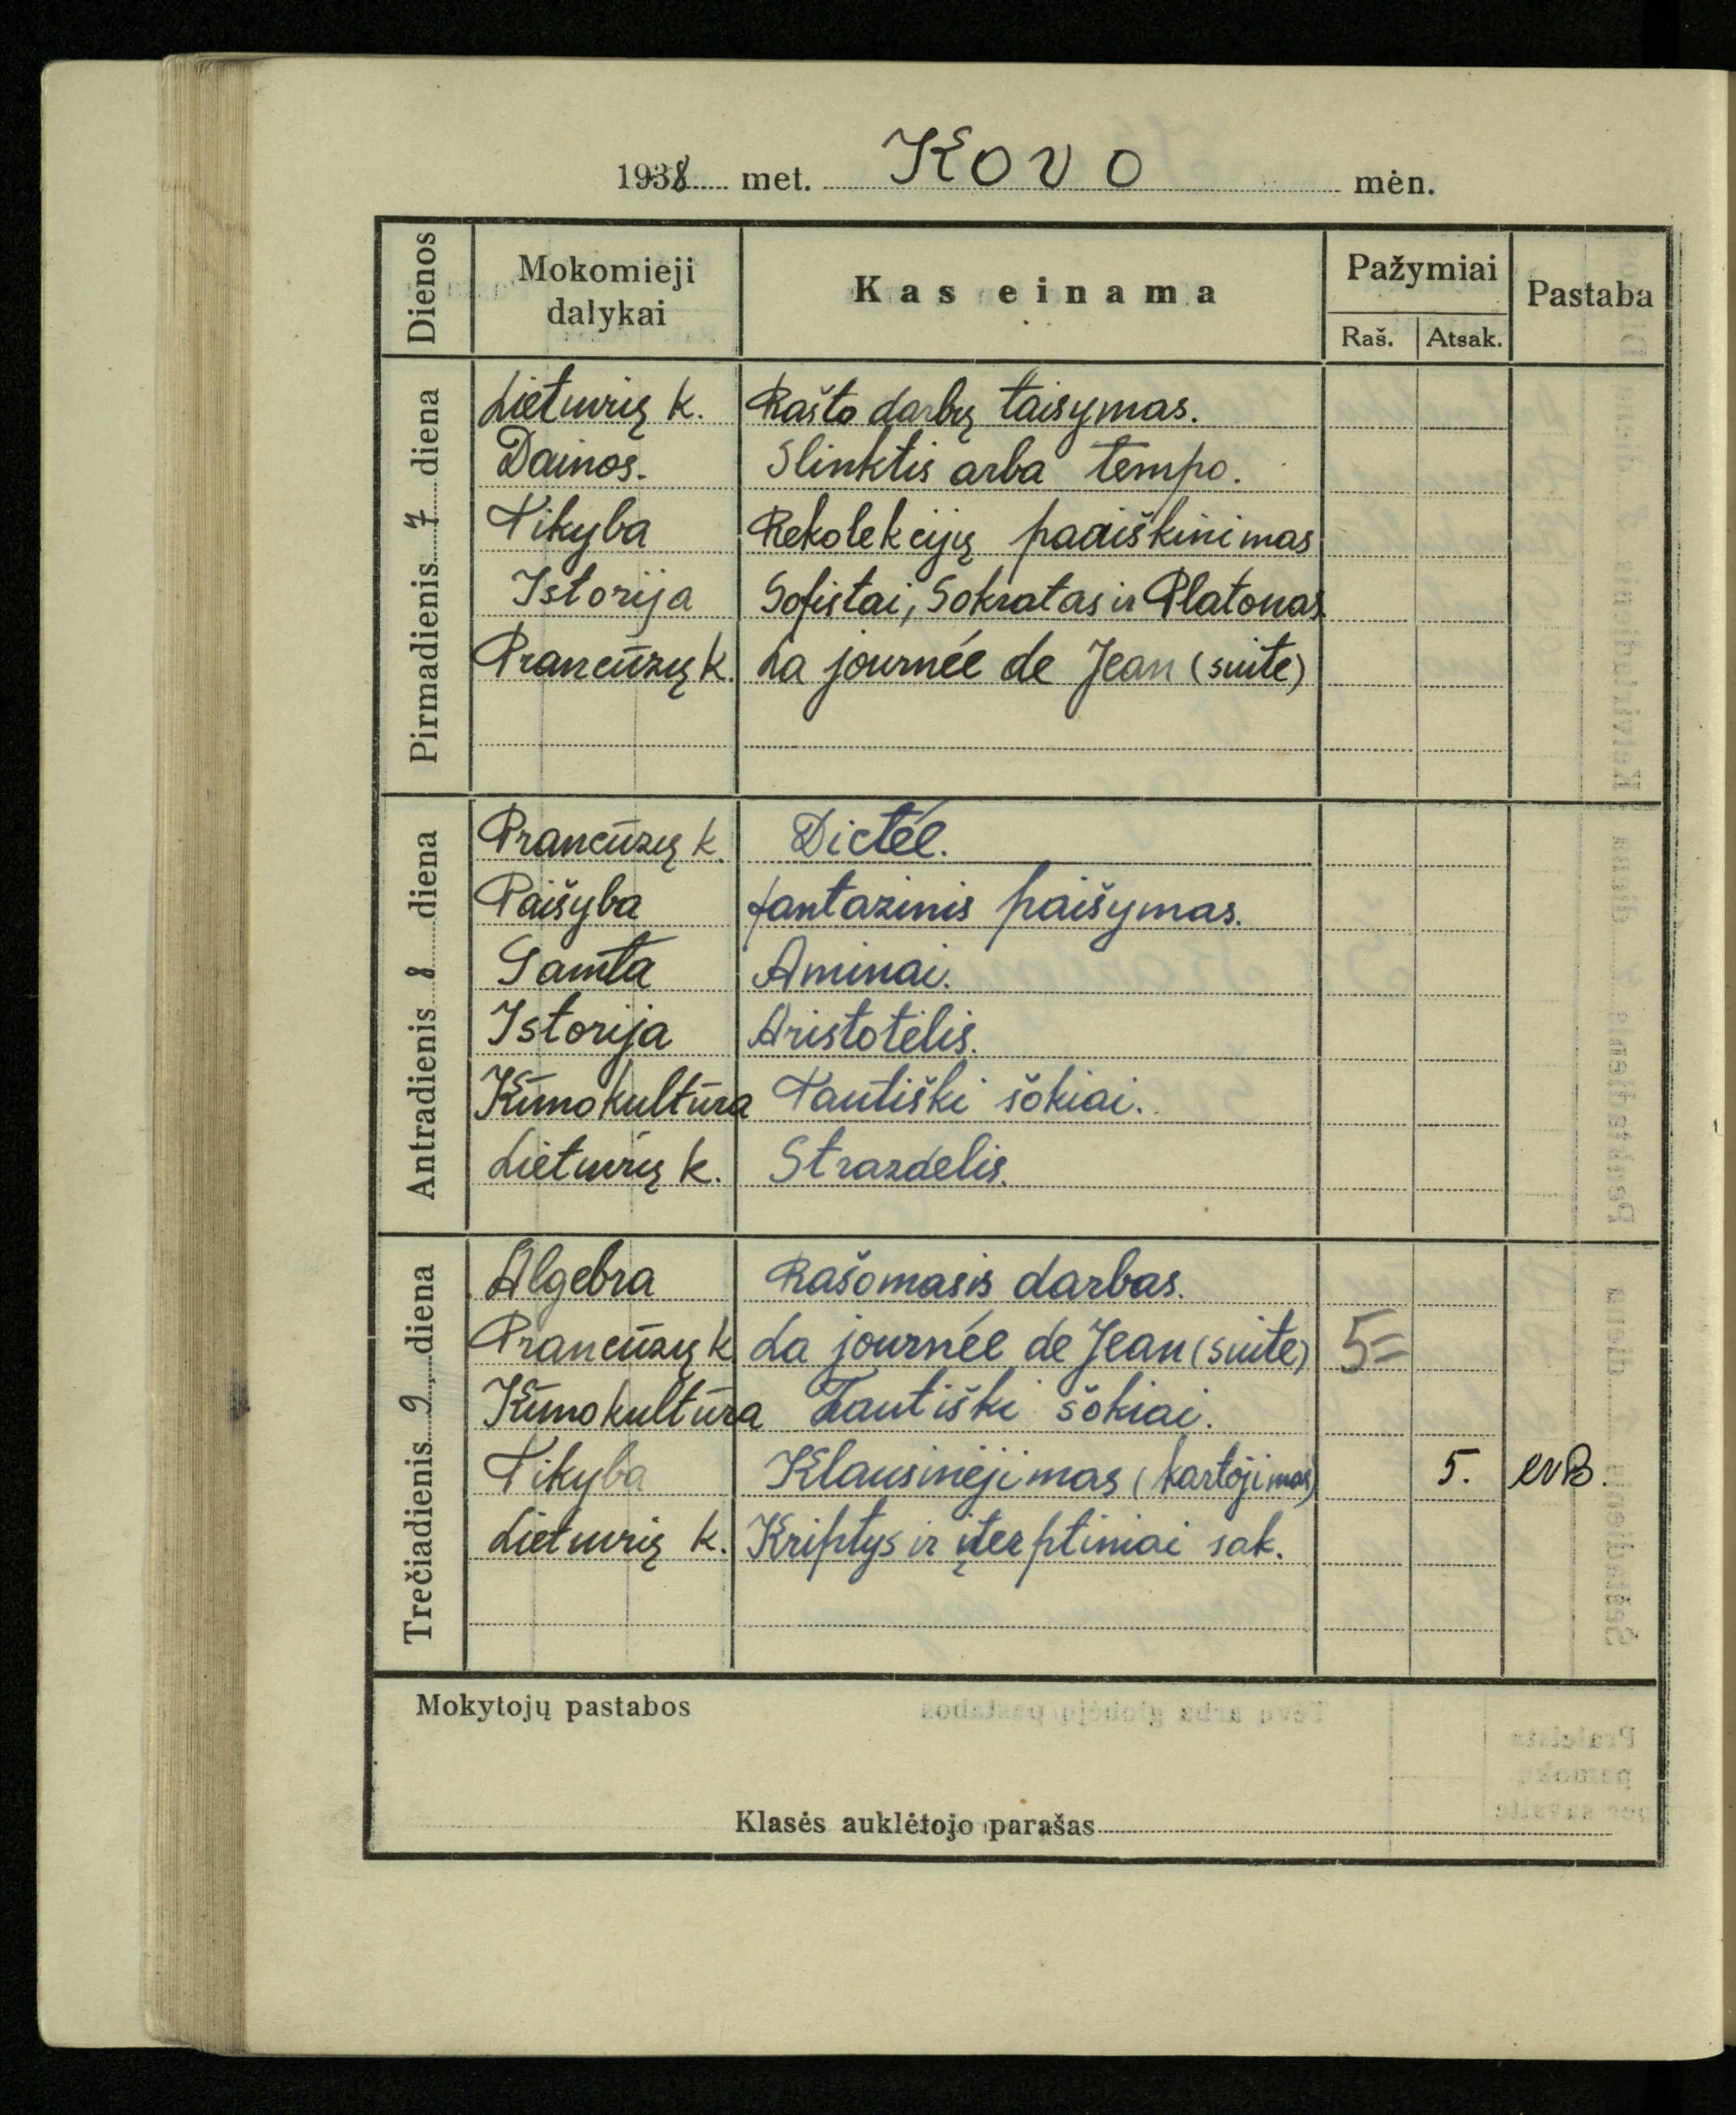 1938 met. Kovo mėn.
Dienos Mokomieji dalykai Kas einama Pažymiai Pastaba
Raš. Atsak.
Pirmadienis 7 diena
Lietuvių k. Rašto darbų taisymas.
Dainos. Slinktis arba tempo.
Tikyba Rekolekcijų paaiškinimas
Istorija Sofistai, Sokratas ir Platonas.
Prancūzų k. La journée de Jean (suite)
Antradienis 8 diena
Prancūzų k. Dictée.
Paišyba fantazinis paišymas.
Gamta Aminai.
Istorija Aristotėlis.
Kūno kultūra Tautiški šokiai.
Lietuvių k. Strazdelis.
Trečiadienis 9 diena
Algebra Rašomasis darbas.
Prancūzų k La journée de Jean (suite) 5=
Kūno kultūra Tautiški šokiai.
Tikyba Klausinėjimas (kartojimas) 5.
Lietuvių k. Kriptys ir įterptiniai sak.
Mokytojų pastabos
Klasės auklėtojo parašas